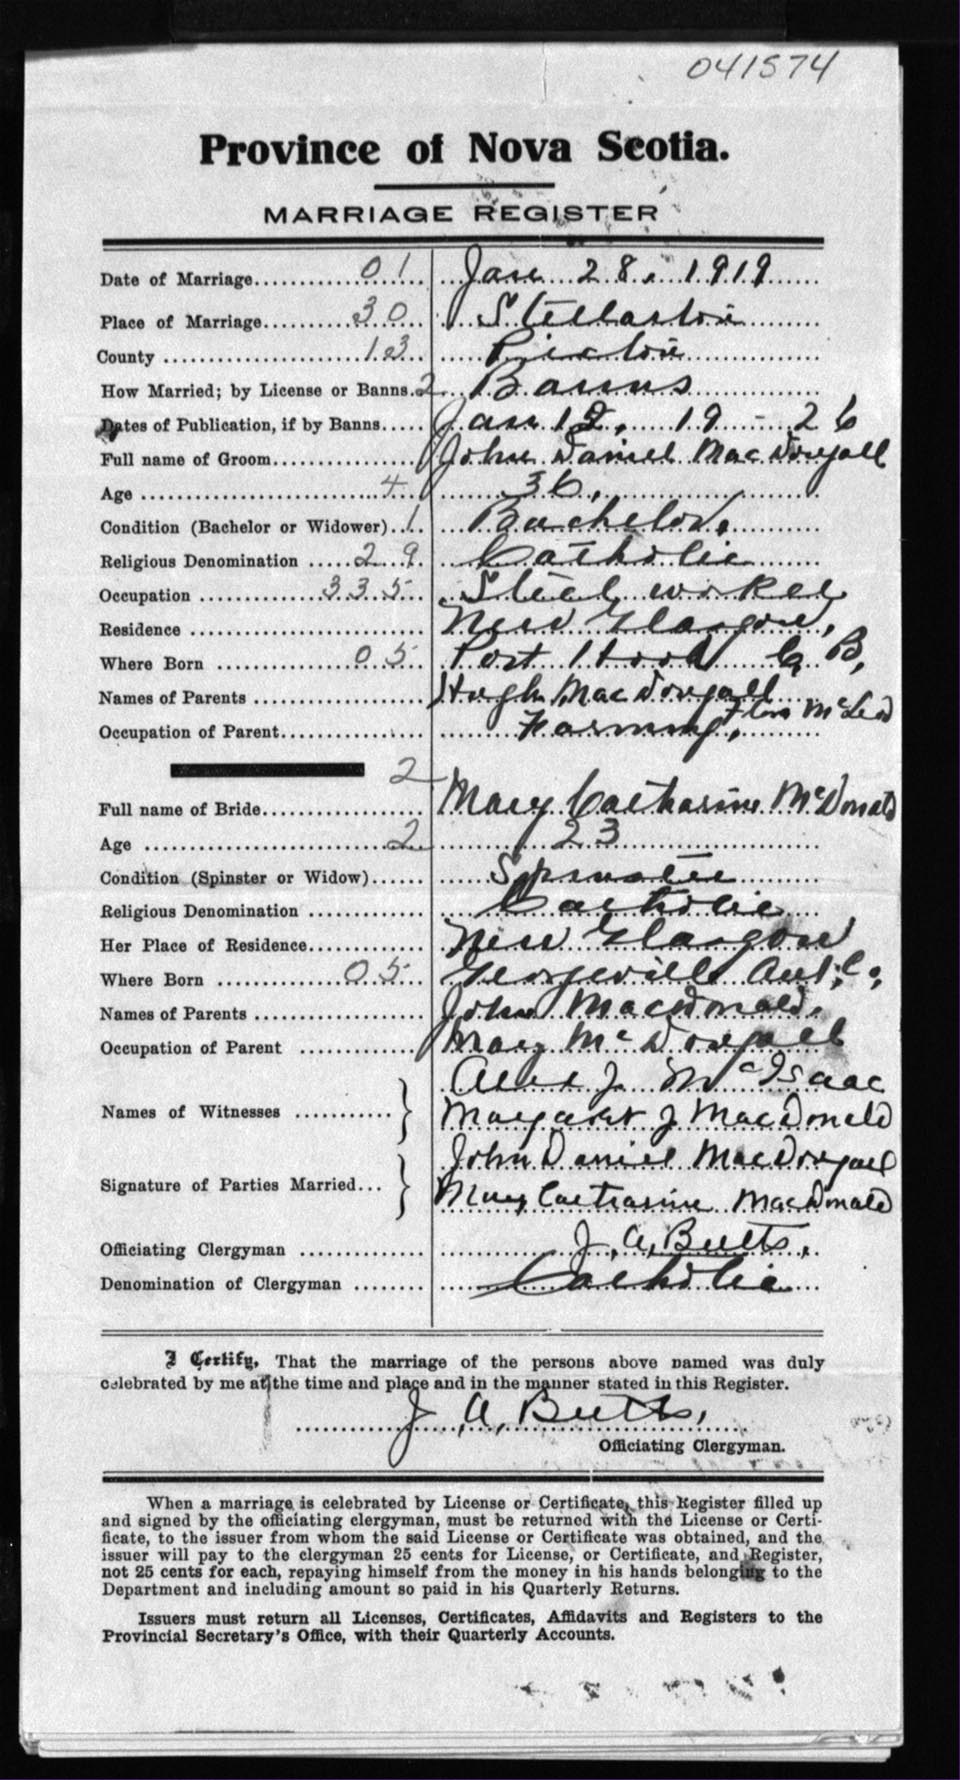 041574
Province of Nova Scotia.
MARRIAGE REGISTER
Date of Marriage............01.. Jan 28, 1919
Place of Marriage.........30... Stellarton
County .....................13.. Pictou
How Married; by License or Banns.2 Banns
Dates of Publication, if by Banns..... Jan 12, 19 - 26
Full name of Groom............... John Daniel MacDougall
Age .........................4.. 36,
Condition (Bachelor or Widower)..1. Bachelor,
Religious Denomination .....29. Catholic
Occupation ............335.. Steel worker
Residence ........................ New Glasgow,
Where Born .............05.. Port Hood C, B,
Names of Parents .................. Hugh MacDougall
Flora McLeod
Occupation of Parent............... Farming,
2
Full name of Bride................. Mary Catharine McDonald
Age .........................2.. 23
Condition (Spinster or Widow)...... Spinster
Religious Denomination ............ Catholic
Her Place of Residence............. New Glasgow
Where Born ............05.. Georgeville Ant, C.
Names of Parents .................. John MacDonald,
Occupation of Parent ............. Mary McDougall
Names of Witnesses ........... } Alex J. McIsaac
Margaret J MacDonald
Signature of Parties Married... } John Daniel MacDougall
Mary Catharine MacDonald
Officiating Clergyman ............. J, A, Butts,
Denomination of Clergyman ........ Catholic
I Certify, That the marriage of the persons above named was duly
celebrated by me at the time and place and in the manner stated in this Register.
J, A, Butts,
Officiating Clergyman.
When a marriage is celebrated by License or Certificate, this Register filled up
and signed by the officiating clergyman, must be returned with the License or Certi-
ficate, to the issuer from whom the said License or Certificate was obtained, and the
issuer will pay to the clergyman 25 cents for License, or Certificate, and Register,
not 25 cents for each, repaying himself from the money in his hands belonging to the
Department and including amount so paid in his Quarterly Returns.
Issuers must return all Licenses, Certificates, Affidavits and Registers to the
Provincial Secretary's Office, with their Quarterly Accounts.